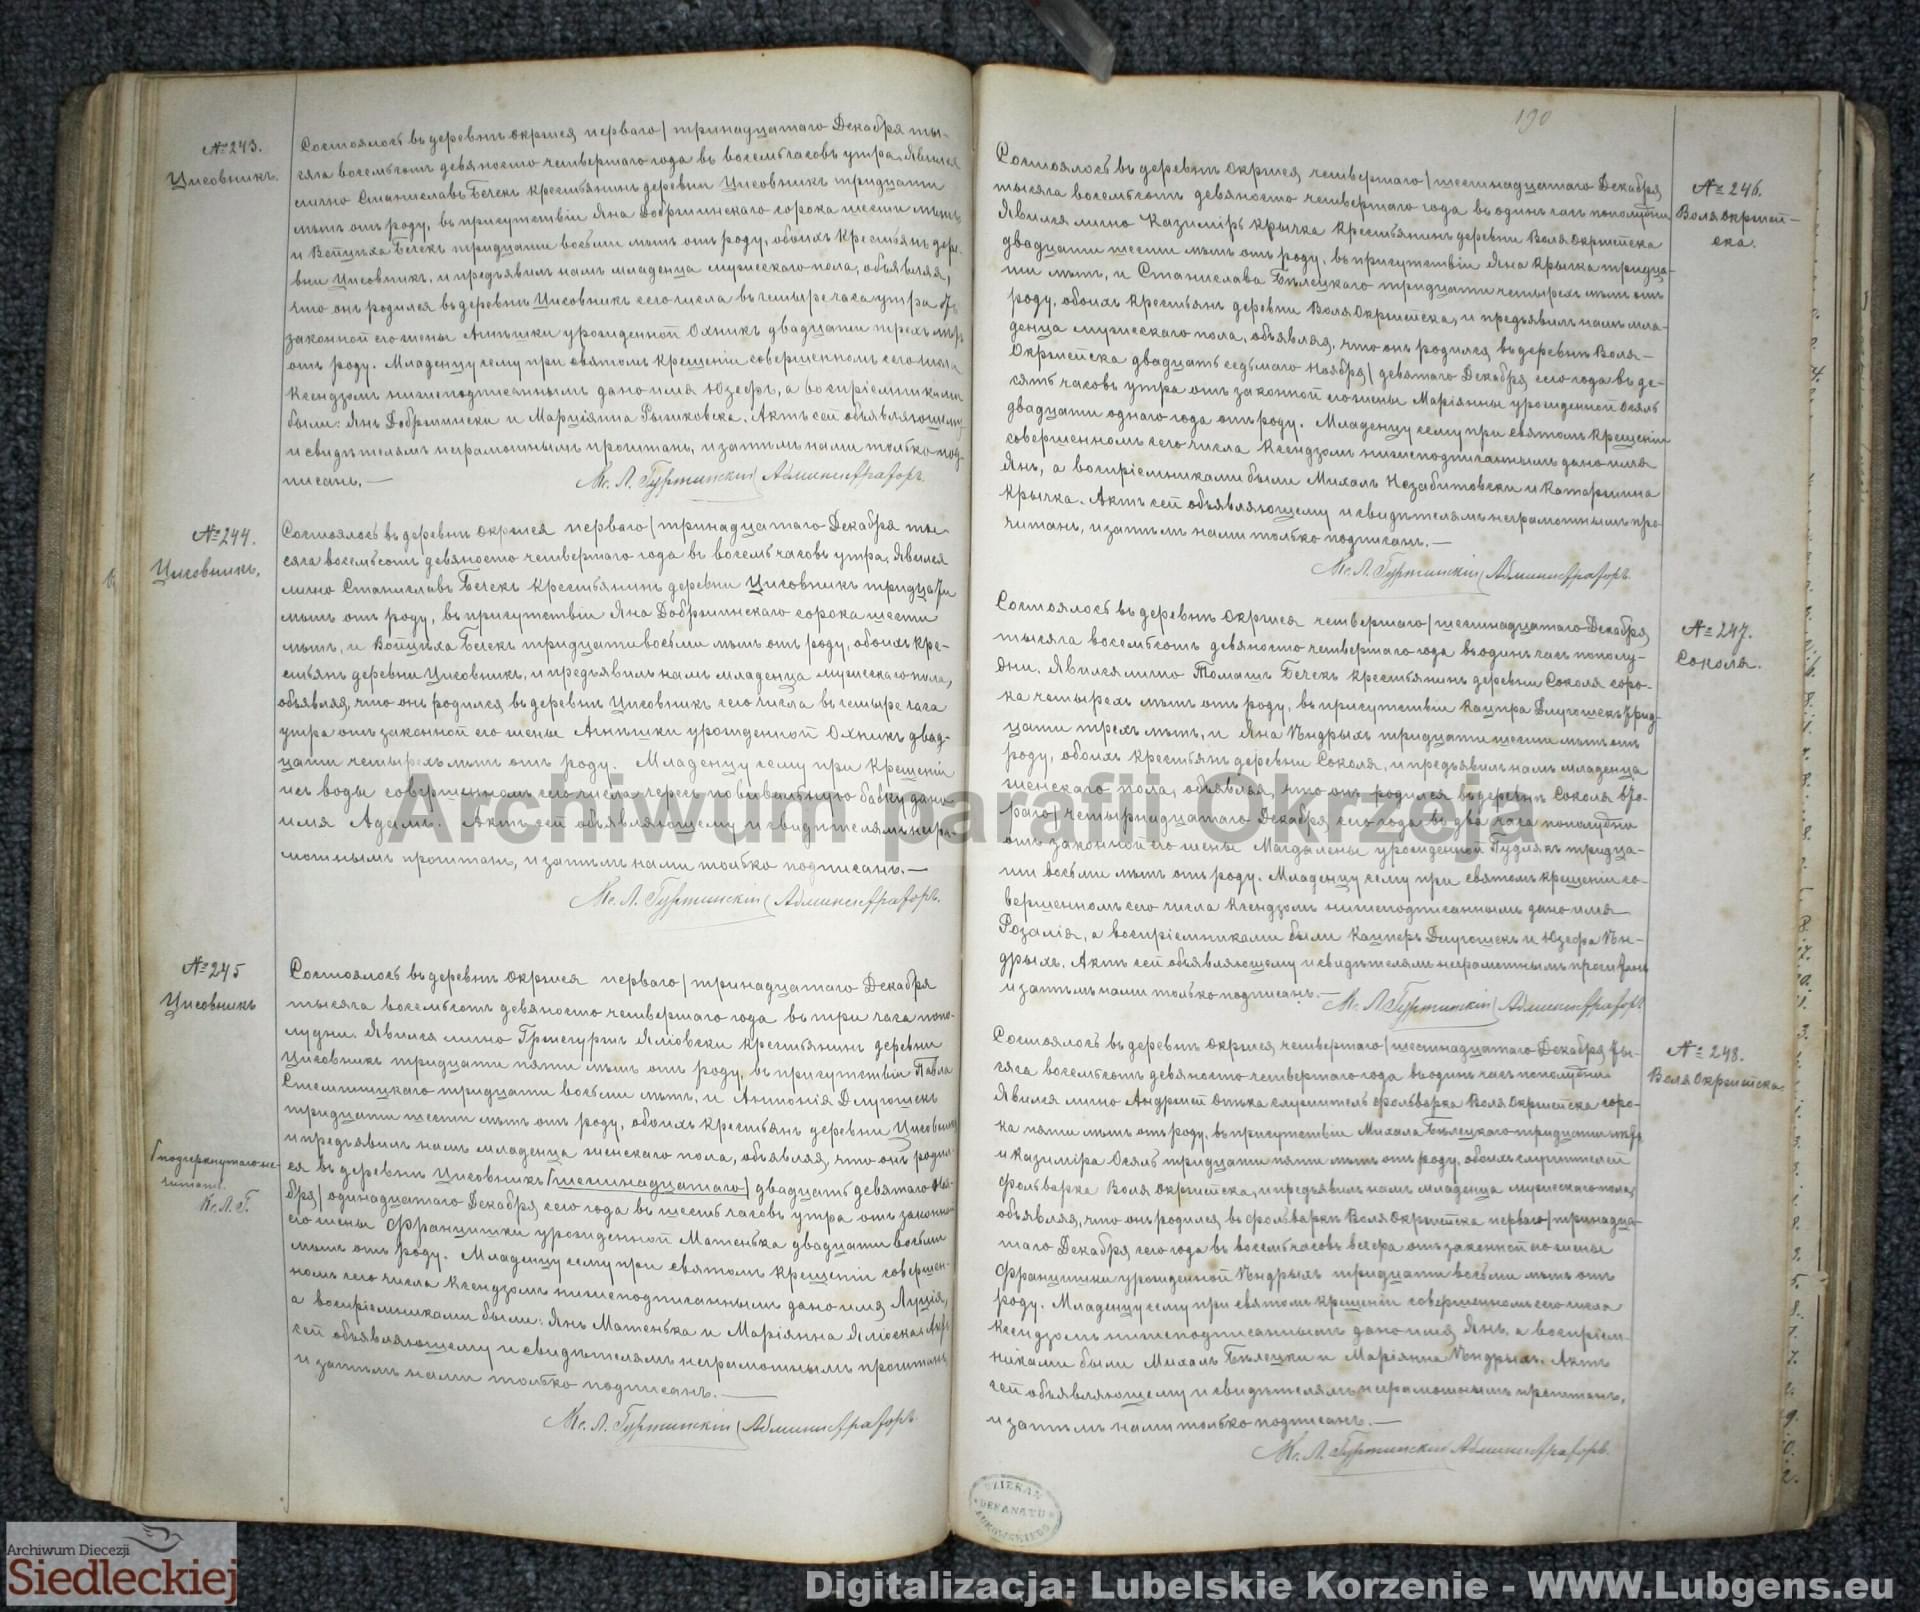 № 243.
Цисовникъ.
Состоялось въ деревнѣ Окржея перваго/тринадцатаго Декабря ты-
сяча восемьсотъ девяносто четвертаго года въ восемь часовъ утра. Явился
лично Станиславъ Бечекъ крестьянинъ деревни Цисовникъ тридцати
лѣтъ отъ роду, въ присутствіи Яна Добржинскаго сорока шести лѣтъ
и Войцѣха Бечекъ тридцати восьми лѣтъ отъ роду, обоихъ крестьянъ дере-
вни Цисовникъ, и предъявилъ намъ младенца мужескаго пола, объявляя,
что онъ родился въ деревнѣ Цисовникъ сего числа въ четыре часа утра отъ
законной его жены Агнѣшки урожденной Охникъ двадцати трехъ лѣтъ
отъ роду. Младенцу сему при святомъ крещеніи совершенномъ сего числа
Ксендзомъ нижеподписаннымъ дано имя Юзефъ, а воспріемниками
были: Янъ Добржински и Марціянна Рычковска. Актъ сей объявляющему
и свидѣтелямъ неграмотнымъ прочитанъ, и затѣмъ нами только под-
писанъ. —
Кс. Л. Гуржинскій Администраторъ.
№ 244.
Цисовникъ.
Состоялось въ деревнѣ Окржея перваго/тринадцатаго Декабря ты-
сяча восемьсотъ девяносто четвертаго года въ восемь часовъ утра. Явился
лично Станиславъ Бечекъ крестьянинъ деревни Цисовникъ тридцати
лѣтъ отъ роду, въ присутствіи Яна Добржинскаго сорока шести
лѣтъ, и Войцѣха Бечекъ тридцати восьми лѣтъ отъ роду, обоихъ кре-
стьянъ деревни Цисовникъ, и предъявилъ намъ младенца мужескаго пола,
объявляя, что онъ родился въ деревнѣ Цисовникъ сего числа въ четыре часа
утра отъ законной его жены Агнѣшки урожденной Охникъ двад-
цати четырехъ лѣтъ отъ роду. Младенцу сему при крещеніи
изъ воды совершенномъ сего числа чрезъ повивальную бабку дано
имя Адамъ. Актъ сей объявляющему и свидѣтелямъ негра-
мотнымъ прочитанъ, и затѣмъ нами только подписанъ. —
Кс. Л. Гуржинскій Администраторъ.
№ 245
Цисовникъ
Состоялось въ деревнѣ Окржея перваго/тринадцатаго Декабря
тысяча восемьсотъ девяносто четвертаго года въ три часа попо-
лудни. Явился лично Гржегуржъ Ялiовски крестьянинъ деревни
Цисовникъ тридцати пяти лѣтъ отъ роду, въ присутствіи Павла
тридцати восьми лѣтъ, и Антонія Длугошекъ
тридцати шести лѣтъ отъ роду, обоихъ крестьянъ деревни Цисовникъ
и предъявилъ намъ младенца женскаго пола, объявляя, что онъ родил-
ся въ деревнѣ Цисовникъ [шестнадцатаго] двадцать девятаго Ноя-
бря/одинадцатаго Декабря сего года въ шесть часовъ утра отъ законной
его жены Францишки урожденной Матенька двадцати восьми
лѣтъ отъ роду. Младенцу сему при святомъ крещеніи совершен-
номъ сего числа Ксендзомъ нижеподписаннымъ дано имя Луція,
а воспріемниками были: Янъ Матенька и Маріянна Ялiоска. Актъ
сей объявляющему и свидѣтелямъ неграмотнымъ прочитанъ,
и затѣмъ нами только подписанъ. —
Кс. Л. Гуржинскій Администраторъ.
[подчеркнутаго не
читать.
Кс. Л. Г.
190
№ 246.
Воля Окржей-
ска.
Состоялось въ деревнѣ Окржея четвертаго/шестнадцатаго Декабря
тысяча восемьсотъ девяносто четвертаго года въ одинъ часъ пополудни.
Явился лично Казиміръ Крычка крестьянинъ деревни Воля Окржейска
двадцати шести лѣтъ отъ роду, въ присутствіи Яна Крычка тридца-
ти лѣтъ, и Станислава Бѣлецкаго тридцати четырехъ лѣтъ отъ
роду, обоихъ крестьянъ деревни Воля Окржейска, и предъявилъ намъ мла-
денца мужескаго пола, объявляя, что онъ родился въ деревнѣ Воля-
Окржейска двадцать седьмаго Ноября/девятаго Декабря сего года въ де-
сять часовъ утра отъ законной его жены Маріянны урожденной Осялъ
двадцати однаго года отъ роду. Младенцу сему при святомъ крещеніи
совершенномъ сего числа Ксендзомъ нижеподписаннымъ дано имя
Янъ, а воспріемниками были Михалъ Незабитовски и Катаржина
Крычка. Актъ сей объявляющему и свидѣтелямъ неграмотнымъ про-
читанъ, и затѣмъ нами только подписанъ. —
Кс. Л. Гуржинскій Администраторъ
№ 247.
Соколя.
Состоялось въ деревнѣ Окржея четвертаго/шестнадцатаго Декабря
тысяча восемьсотъ девяносто четвертаго года въ одинъ часъ пополу-
дни. Явился лично Томашъ Бечекъ крестьянинъ деревни Соколя соро-
ка четырехъ лѣтъ отъ роду, въ присутствіи Кацпра Длугошекъ трид-
цати трехъ лѣтъ, и Яна Ѣндрыхъ тридцати шести лѣтъ отъ
роду, обоихъ крестьянъ деревни Соколя, и предъявилъ намъ младенца
женскаго пола, объявляя, что онъ родился въ деревнѣ Соколя вто-
раго/четырнадцатаго Декабря сего года въ два часа пополудни
отъ законной его жены Магдалены урожденной Гудлякъ тридца-
ти восьми лѣтъ отъ роду. Младенцу сему при святомъ крещеніи со-
вершенномъ сего числа Ксендзомъ нижеподписаннымъ дано имя
Розалія, а воспріемниками были Кацперъ Длугошекъ и Юзефа Ѣн-
дрыхъ. Актъ сей объявляющему и свидѣтелямъ неграмотнымъ прочитанъ
и затѣмъ нами только подписанъ. — Кс. Л. Гуржинскій Администраторъ
№ 248.
Воля Окржейска.
Состоялось въ деревнѣ Окржея четвертаго/шестнадцатаго Декабря ты-
сяча восемьсотъ девяносто четвертаго года въ одинъ часъ пополудни.
Явился лично Андржей Отька служитель фольварка Воля Окржейска соро-
ка пяти лѣтъ отъ роду, въ присутствіи Михала Бѣлецкаго тридцати лѣтъ
и Казиміра Осялъ тридцати пяти лѣтъ отъ роду, обоихъ служителей
фольварка Воля Окржейска, и предъявилъ намъ младенца мужескаго пола,
объявляя, что онъ родился въ фольваркѣ Воля Окржейска перваго/тринадца-
таго Декабря сего года въ восемь часовъ вечера отъ законной его жены
Францишки урожденной Ѣндрыхъ тридцати восьми лѣтъ отъ
роду. Младенцу сему при святомъ крещеніи совершенномъ сего числа
Ксендзомъ нижеподписаннымъ дано имя Янъ, а воспріем-
никами были Михалъ Бѣлецки и Маріянна Ѣндрыхъ. Актъ
сей объявляющему и свидѣтелямъ неграмотнымъ прочитанъ,
и затѣмъ нами только подписанъ. —
Кс. Л. Гуржинскій Администраторъ.
DZIEKAN
DEKANATU
ŁUKOWSKIEGO
Archiwum parafii Okrzeja
Archiwum Diecezji
Siedleckiej
Digitalizacja: Lubelskie Korzenie - WWW.Lubgens.eu